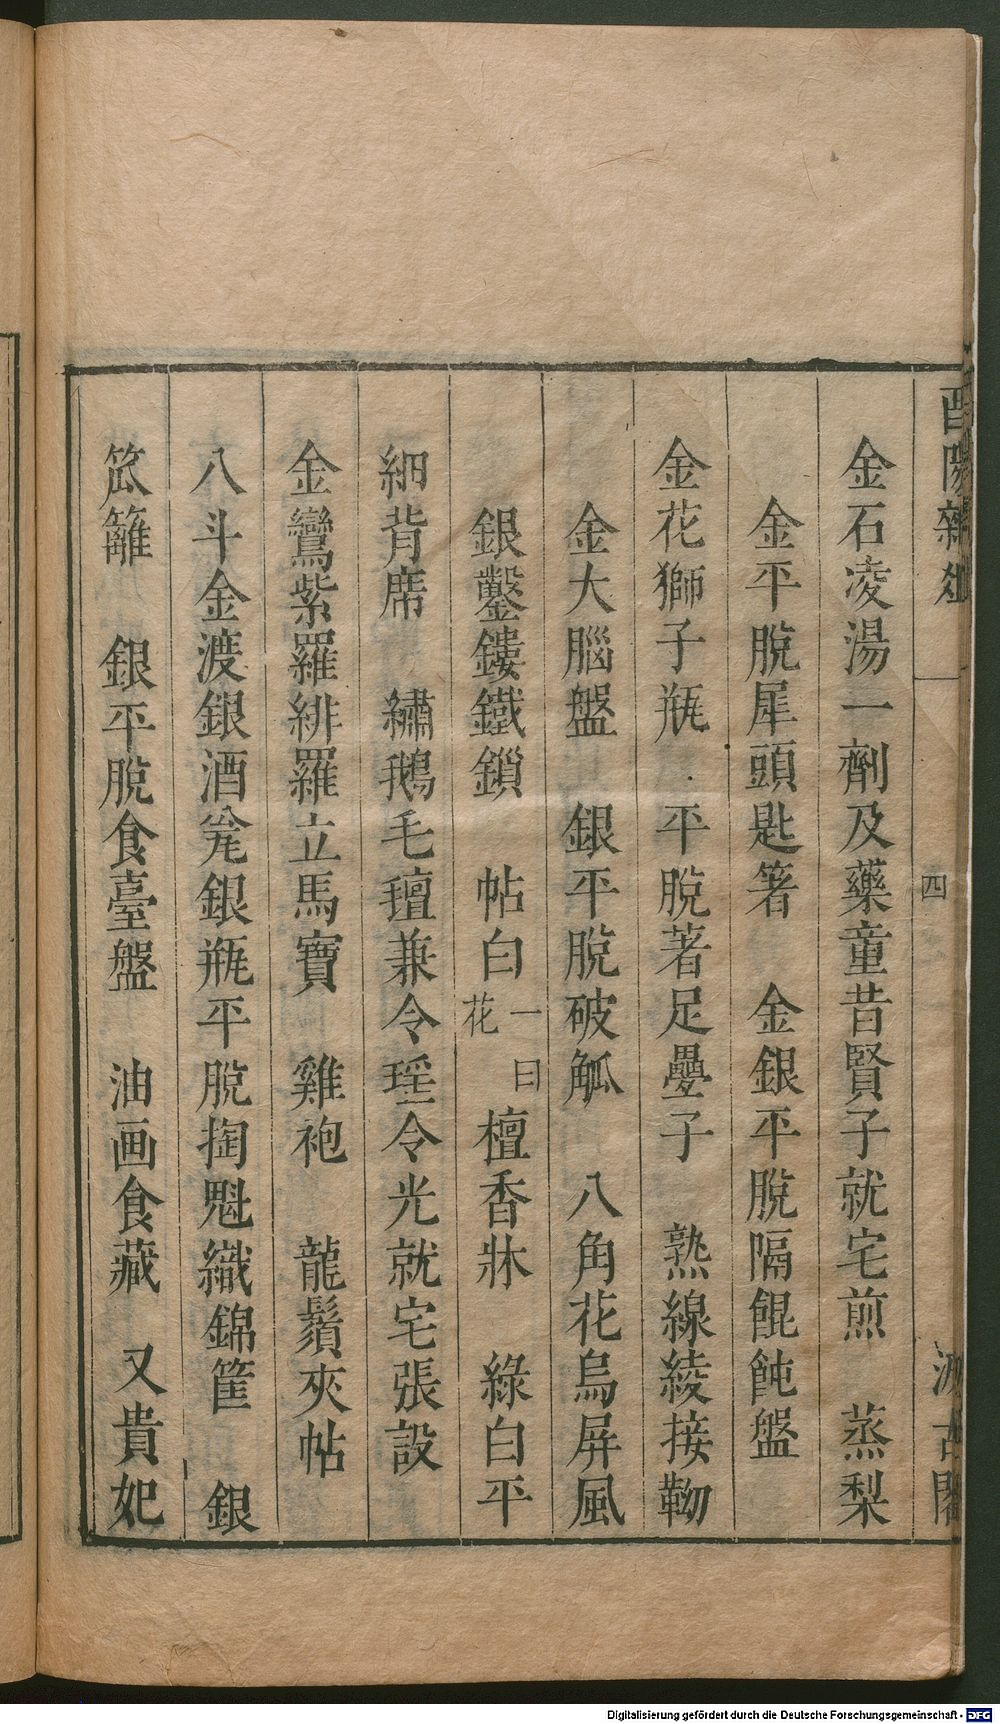 酉陽雜俎 一 四 汲古閣
金石凌湯一劑及藥童昔賢子就宅煎 蒸梨
金平脫犀頭匙箸 金銀平脫隔餛飩盤
金花獅子瓶 平脫著足疊子 熟線綾接䩄
金大腦盤 銀平脫破觚 八角花鳥屏風
銀鑿鏤鐵鎖 帖白一曰花檀香牀 綠白平
細背席 繡鵝毛氊兼令瑤令光就宅張設
金鸞紫羅緋羅立馬寶 雞袍 龍鬚夾帖
八斗金渡銀酒瓮銀瓶平脫掏魁織錦筐 銀
笊籬 銀平脫食臺盤 油画食藏 又貴妃
Digitalisierung gefördert durch die Deutsche Forschungsgemeinschaft - DFG